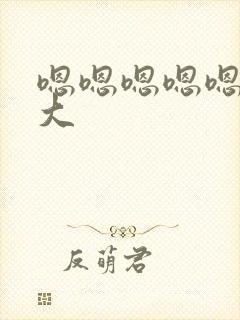 嗯嗯嗯嗯嗯
大
反萌君